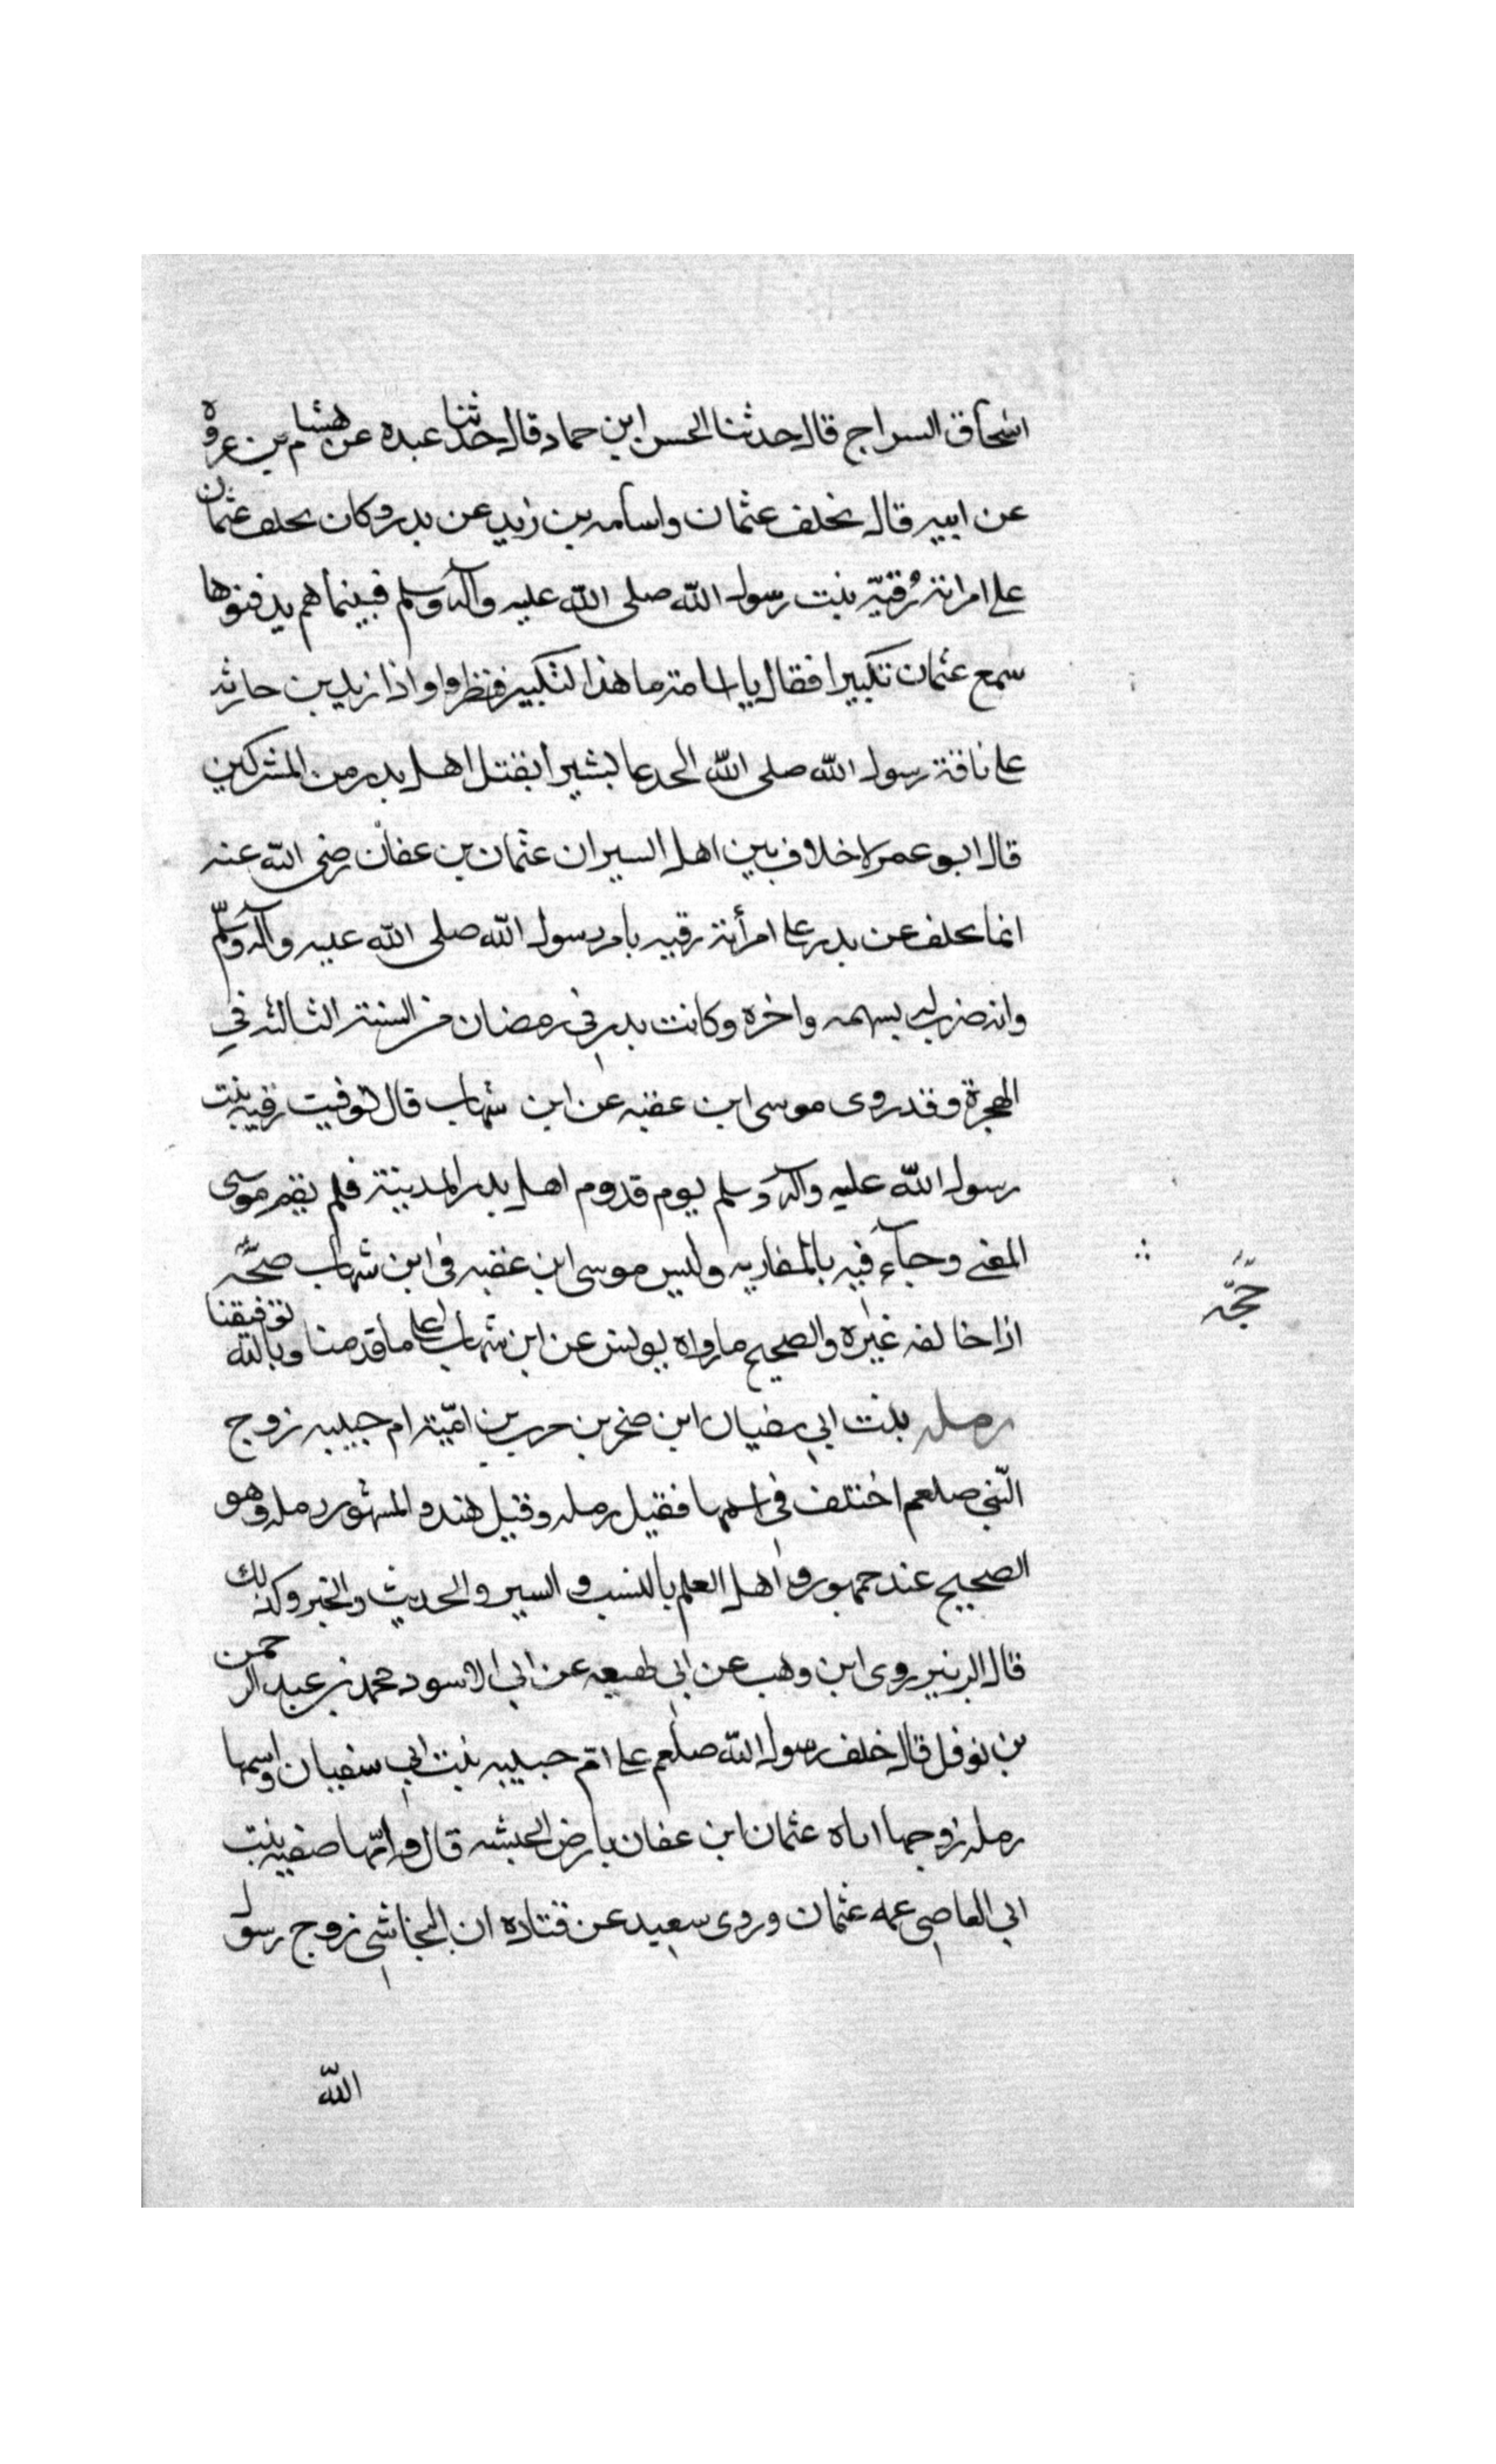 اسحاق السراج قال حدثنا الحسن ابن حماد قال حدثنا عبده عن هشام بن عروه
عن ابيه قال تخلف عثمان واسامه بن زيد عن بدر وكان تخلف عثمان
على امراته رُقيّه بنت رسول الله صلى الله عليه وآله وسلم فبينما هم يدفنوها
سمع عثمان تكبيرا فقال يا اسامة ما هذا التكبير فنظروا واذا زيد بن حارثه
على ناقة رسول الله صلى الله الجدعا بشيرا بقتل اهل بدر من المشركين
قال ابو عمر لا خلاف بين اهل السير ان عثمان بن عفان رضى الله عنه
انما تخلف عن بدر على امرأته رقيه بامر رسول الله صلى الله عليه وآله وسلّم
وانه ضرب له بسهمه واخره وكانت بدر في رمضان من السنة الثالثه في
الهجرة وقد روى موسى ابن عقبه عن ابن شهاب قال توفيت رقيه بنت
رسول الله عليه وآله وسلم يوم قدوم اهل بدر المدينة فلم يقم موسى
المعنى وجآء فيه بالمقاربه وليس موسى ابن عقبه فى ابن شهاب صحّه
حجّه
اذا خالفه غيره والصحيح ما رواه يونس عن ابن شهاب على ما قدمنا وبالله توفيقنا
رمله بنت ابي سفيان ابن صخر بن حرب بن اميّة ام حبيبه زوج
النّبي صلعم اختلف في اسمها فقيل رمله وقيل هند والمشهور رمله وهو
الصحيح عند جمهور اهل العلم بالنسب والسير والحديث والخبر وكذلك
قال الزبير روى ابن وهب عن ابى لهيعه عن ابي الاسود محمد بن عبد الرحمن
بن نوفل قال خلف رسول الله صلعم على امّ حبيبه بنت ابي سفيان واسمها
رمله زوجها اياه عثمان ابن عفان بارض الحبشه قال وامّها صفيه بنت
ابي العاصي عمه عثمان وروى سعيد عن قتاده ان النجاشي زوج رسول
الله